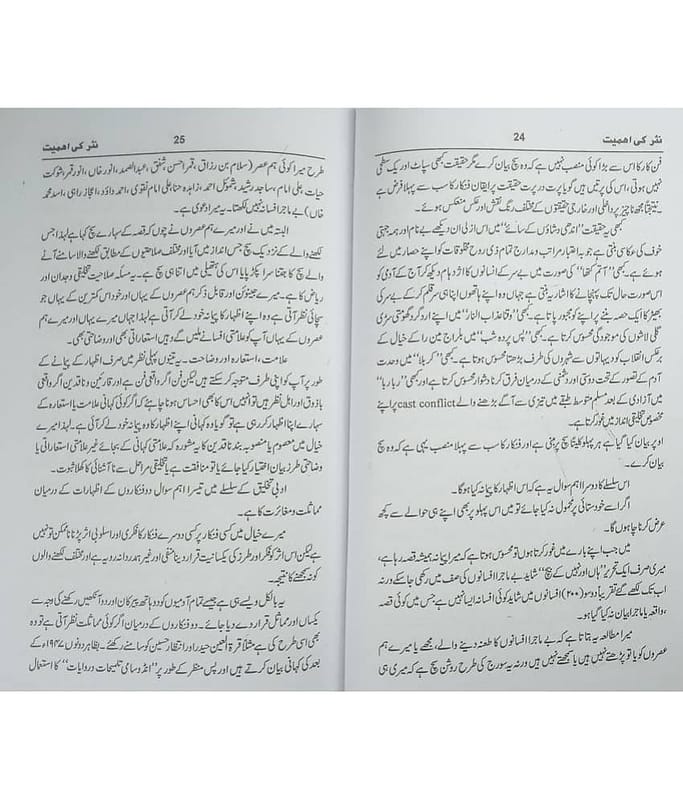 نثر کی اھمیت 24
فن کار کا اس سے بڑا کوئی منصب نہیں ہے کہ وہ سچ بیان کرے مگر حقیقت کبھی سپاٹ اور یک سطحی
نہیں ہوتی، اس کی پرتیں ہیں گویا پرت در پرت حقیقت پر ایقان فنکار کا سب سے پہلا فرض ہے
۔ نتیجتاً مجھ ناچیز پر داخلی اور خارجی حقیقتوں کے مختلف رنگ نقش اور عکس منعکس ہوئے۔
کبھی یہ حقیقت ”اندھی وشاؤں کے سائے“ میں اس ازلی ان دیکھے بے نام اور ہمہ جہتی
خوف کی عکاسی بنتی ہے جو بہ اعتبار مراتب و مدارج تمام ذی روح مخلوقات کو اپنے حصار میں لئے
ہوئے ہے۔ کبھی ”آتم کتھا“ کی صورت میں بے سر کے انسانوں کا اژدہام دیکھ کر آج کے آدمی کو
اس صورت حال تک پہنچانے کا اشاریہ بنتی ہے جہاں وہ اپنے ہاتھوں اپنا ہی سر قلم کر کے بے سر کی
بھیڑ کا ایک حصہ بننے پر اپنے کو مجبور پاتا ہے۔ کبھی ”وقنا عذاب النار“ میں اپنے ارد گرد گھومتی سڑی
گلی لاشوں کی موجودگی محسوس کرتا ہے۔ کبھی ”پس پردہ شب“ میں بلراج مین را کے خیال کے
برعکس انقلاب کو دیہاتوں سے شہروں کی طرف بڑھتا محسوس ہوتا ہے۔ کبھی ”کربلا“ میں وحدت
آدم کے تصور کے تحت دوستی اور دشمنی کے درمیان فرق کرنا دشوار محسوس کرتا ہے اور کبھی
میں آزادی کے بعد مسلم متوسط طبقے میں تیزی سے آگے بڑھنے والے cast conflict پر اپنے
مخصوص تخلیقی انداز میں غور کرتا ہے۔
اوپر بیان کیا گیا ہے ہر پہلو یکتا سچ پر مبنی ہے اور فنکار کا سب سے پہلا منصب یہی ہے کہ وہ سچ
بیان کرے۔
اس سلسلے کا دوسرا اہم سوال یہ ہے کہ اس اظہار کا پیمانہ کیا ہوگا۔
اگر اسے خودستائی پر محمول نہ کیا جائے تو میں اس پہلو پر بھی اپنے ہی حوالے سے کچھ
عرض کرنا چاہوں گا۔
میں جب اپنے بارے میں غور کرتا ہوں تو محسوس ہوتا ہے کہ میرا پیمانہ ہمیشہ قصہ رہا ہے،
میری صرف ایک تحریر ”ہاں اور نہیں کے بیچ“ شاید بے ماجرا افسانوں کی صف میں رکھی جا سکے ورنہ
اب تک لکھے گئے تقریباً دو سو (۲۰۰) افسانوں میں شاید کوئی افسانہ ایسا نہیں ہے جس میں کوئی قصہ
، واقعہ یا ماجرا بیان نہ کیا گیا ہو۔
میرا مطالعہ یہ بتاتا ہے کہ بے ماجرا افسانوں کا طعنہ دینے والے، مجھے یا میرے ہم
عصروں کو یا تو پڑھتے نہیں ہیں یا سمجھتے نہیں ہیں ورنہ یہ سورج کی طرح روشن سچ ہے کہ میری ہی
25 نثر کی اھمیت
طرح میرا کوئی ہم عصر (سلام بن رزاق، قمر احسن، شفق، عبدالصمد، انور خاں، انور قمر، شوکت
حیات، علی امام، ساجد رشید، شموئل احمد، زاہدہ حنا، علی امام نقوی، احمد داؤد، اعجاز راہی، اسد محمد
خاں) بے ماجرا افسانہ نہیں لکھتا۔ یہ میرا دعویٰ ہے۔
البتہ میں نے اور میرے ہم عصروں نے چوں کہ قصہ کے سہارے سچ کہا ہے لہٰذا جس
لکھنے والے کے نزدیک سچ جس انداز میں آیا اور مختلف صلاحیتوں کے مطابق لکھنے والا سامنے آنے
والے سچ کا جتنا سرا پکڑ پایا اس کی ہتھیلی میں اتنا ہی سچ ہے۔ یہ مسئلہ صلاحیت تخلیقی وجدان اور
ریاض کا ہے۔ میرے جینوئن اور قابل ذکر ہم عصروں کے یہاں اور خود اس کمترین کے یہاں جو
سچائی نظر آتی ہے وہ اپنے اظہار کا پیمانہ خود لے کر آتی ہے لہٰذا جہاں میرے یہاں اور میرے ہم
عصروں کے یہاں آپ کو علامتی افسانے ملیں گے وہیں استعاراتی بھی اور وضاحتی بھی۔
علامت، استعارہ اور وضاحت۔ یہ تینوں پہلی نظر میں صرف اظہار کے پیمانے کے
طور پر آپ کو اپنی طرف متوجہ کر سکتے ہیں لیکن فن اگر واقعی فن ہے اور قارئین و ناقدین اگر واقعی
باذوق اور اہل نظر ہیں تو انہیں اس کا بھی احساس ہونا چاہئے کہ اگر کوئی کہانی علامت یا استعارہ کے
سہارے اپنا اظہار کر رہی ہے تو گویا وہ کہانی اپنے اظہار کا وہ پیمانہ خود لے کر آئی ہے۔ لہٰذا میرے
خیال میں معصوم یا منصوبہ بند ناقدین کا یہ مشورہ کہ علامتی کہانی کے بجائے غیر علامتی استعاراتی یا
وضاحتی طرز بیان اختیار کیا جائے یا تو منافقت ہے یا تخلیقی مراحل سے نا آشنائی کا کھلا ثبوت۔
ادبی تخلیق کے سلسلے میں تیسرا اہم سوال دو فنکاروں کے اظہارات کے درمیان
مماثلت و مغائرت کا ہے۔
میرے خیال میں کسی فنکار پر کسی دوسرے فنکار کا فکری اور اسلوبی اثر پڑنا ناممکن تو نہیں
ہے لیکن اس اثر کو فکر اور طرز کی یکسانیت قرار دینا منفی اور غیر ہمدردانہ رویہ ہے اور مختلف لکھنے والوں
کو نہ سمجھنے کا نتیجہ۔
یہ بالکل ویسے ہی ہے جیسے تمام آدمیوں کو دو ہاتھ پیر کان اور دو آنکھیں رکھنے کی وجہ سے
یکساں اور مماثل قرار دے دیا جائے۔ دو فنکاروں کے درمیان اگر کوئی مماثلت نظر آتی ہے تو وہ
بھی اسی طرح کی ہے مثلاً قرۃ العین حیدر اور انتظار حسین کو سامنے رکھئے۔ بظاہر دونوں ۱۹۴۷ء کے
بعد کی کہانی بیان کرتے ہیں اور پس منظر کے طور پر ”انڈو سامی تلمیحات و روایات“ کا استعمال